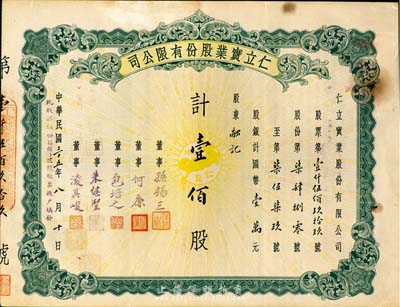 仁立實業股份有限公司
仁立實業股份有限公司
股票第壹仟伍佰玖拾玖號
股份第柒肆捌零號
至第柒伍柒玖號
股銀計國幣壹萬元
股東融記
計壹佰股
董事 孫錫三
董事 何康
董事 包培之
董事 朱繼聖
董事 凌其峻
中華民國三十五年八月十日
第壹仟伍佰玖拾玖號